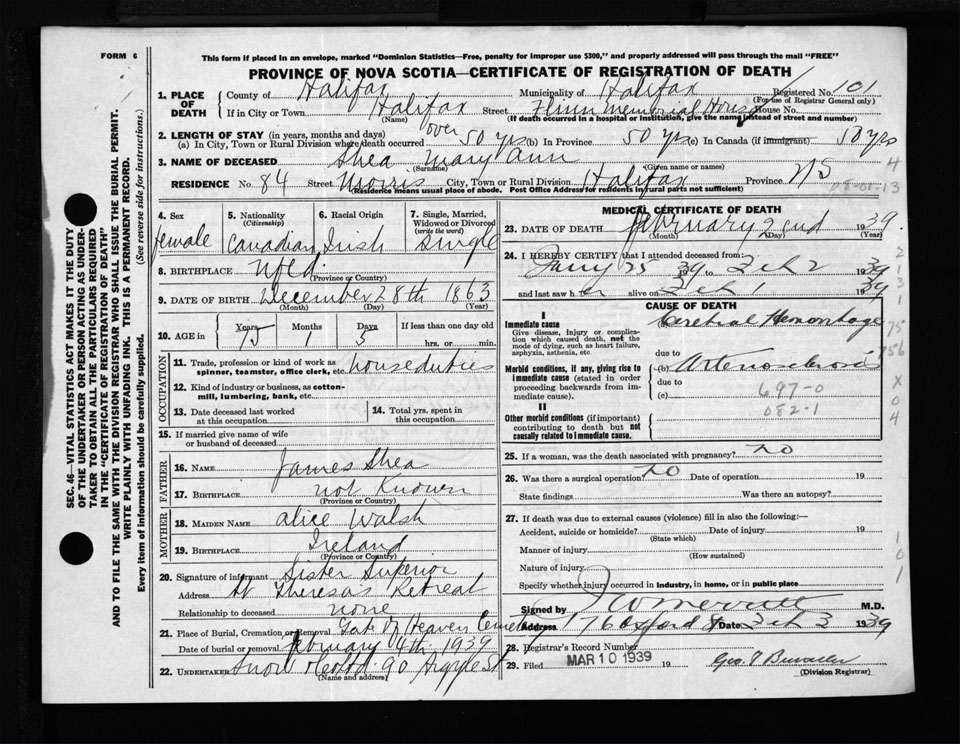 FORM 6
This form if placed in an envelope, marked "Dominion Statistics—Free, penalty for improper use $300," and properly addressed will pass through the mail "FREE"
PROVINCE OF NOVA SCOTIA—CERTIFICATE OF REGISTRATION OF DEATH
1. PLACE OF DEATH County of Halifax Municipality of Halifax Registered No. 101
(For use of Registrar General only)
If in City or Town Halifax Street Flinn Memorial House No.
(Name) (If death occurred in a hospital or institution, give the name instead of street and number)
2. LENGTH OF STAY (in years, months and days)
(a) In City, Town or Rural Division where death occurred over 50 yrs (b) In Province 50 yrs (c) In Canada (if immigrant) 50 yrs
3. NAME OF DECEASED Shea Mary Ann
(Surname) (Given name or names)
RESIDENCE No. 84 Street Morris City, Town or Rural Division Halifax Province NS
(Residence means usual place of abode. Post Office Address for residents in rural parts not sufficient)
4. Sex
female
5. Nationality (Citizenship)
Canadian
6. Racial Origin
Irish
7. Single, Married, Widowed or Divorced (write the word)
Single
8. BIRTHPLACE Nfld.
(Province or Country)
9. DATE OF BIRTH December 28th 1863
(Month) (Day) (Year)
10. AGE in Years Months Days If less than one day old
75 1 5 hrs. or min.
OCCUPATION
11. Trade, profession or kind of work as spinner, teamster, office clerk, etc. houseduties
12. Kind of industry or business, as cotton-mill, lumbering, bank, etc.
13. Date deceased last worked at this occupation
14. Total yrs. spent in this occupation
15. If married give name of wife or husband of deceased
FATHER
16. NAME James Shea
17. BIRTHPLACE not Known
(Province or Country)
MOTHER
18. MAIDEN NAME Alice Walsh
19. BIRTHPLACE Ireland
(Province or Country)
20. Signature of informant Sister Superior
Address St Theresas Retreat
Relationship to deceased none
21. Place of Burial, Cremation or Removal Gate of Heaven Cemetery
Date of burial or removal February 4th, 1939
22. UNDERTAKER Snow 90 Argyle St
(Name and address)
MEDICAL CERTIFICATE OF DEATH
23. DATE OF DEATH February 2end 1939.
(Month) (Day) (Year)
24. I HEREBY CERTIFY that I attended deceased from:
Jany 25 1939 to Feb 2 1939
and last saw her alive on Feb 1 1939
CAUSE OF DEATH
I
Immediate cause
Give disease, injury or complication which caused death, not the mode of dying, such as heart failure, asphyxia, asthenia, etc.
(a) Cerebral Hemorrhage
due to
Morbid conditions, if any, giving rise to immediate cause (stated in order proceeding backwards from immediate cause).
(b) Arteriosclerosis
due to
(c) 697-0
082-1
II
Other morbid conditions (if important) contributing to death but not causally related to immediate cause.
25. If a woman, was the death associated with pregnancy? no
26. Was there a surgical operation? no Date of operation 19
State findings Was there an autopsy?
27. If death was due to external causes (violence) fill in also the following:—
Accident, suicide or homicide? Date of injury 19
(State which)
Manner of injury
(How sustained)
Nature of injury
Specify whether injury occurred in industry, in home, or in public place
Signed by M.D.
Address 176 Oxford St Date Feb 3 1939
28. Registrar's Record Number
29. Filed MAR 10 1939 19 Geo.
(Division Registrar)
SEC. 46—VITAL STATISTICS ACT MAKES IT THE DUTY OF THE UNDERTAKER OR PERSON ACTING AS UNDERTAKER TO OBTAIN ALL THE PARTICULARS REQUIRED IN THE "CERTIFICATE OF REGISTRATION OF DEATH" AND TO FILE THE SAME WITH THE DIVISION REGISTRAR WHO SHALL ISSUE THE BURIAL PERMIT.
WRITE PLAINLY WITH UNFADING INK. THIS IS A PERMANENT RECORD.
Every item of information should be carefully supplied. (See reverse side for instructions.)